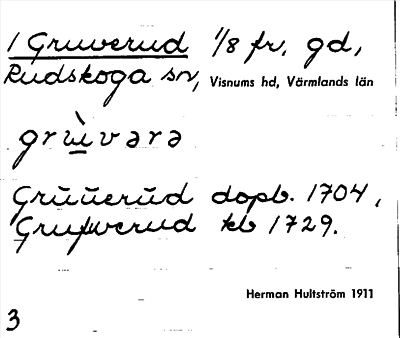 1 Gruverud 1/8 fr. gd,
Rudskoga sn, Visnums hd, Värmlands län
grùvərə
Grŭŭerŭd dopb. 1704,
Grufwerud kb 1729.
Herman Hultström 1911
3